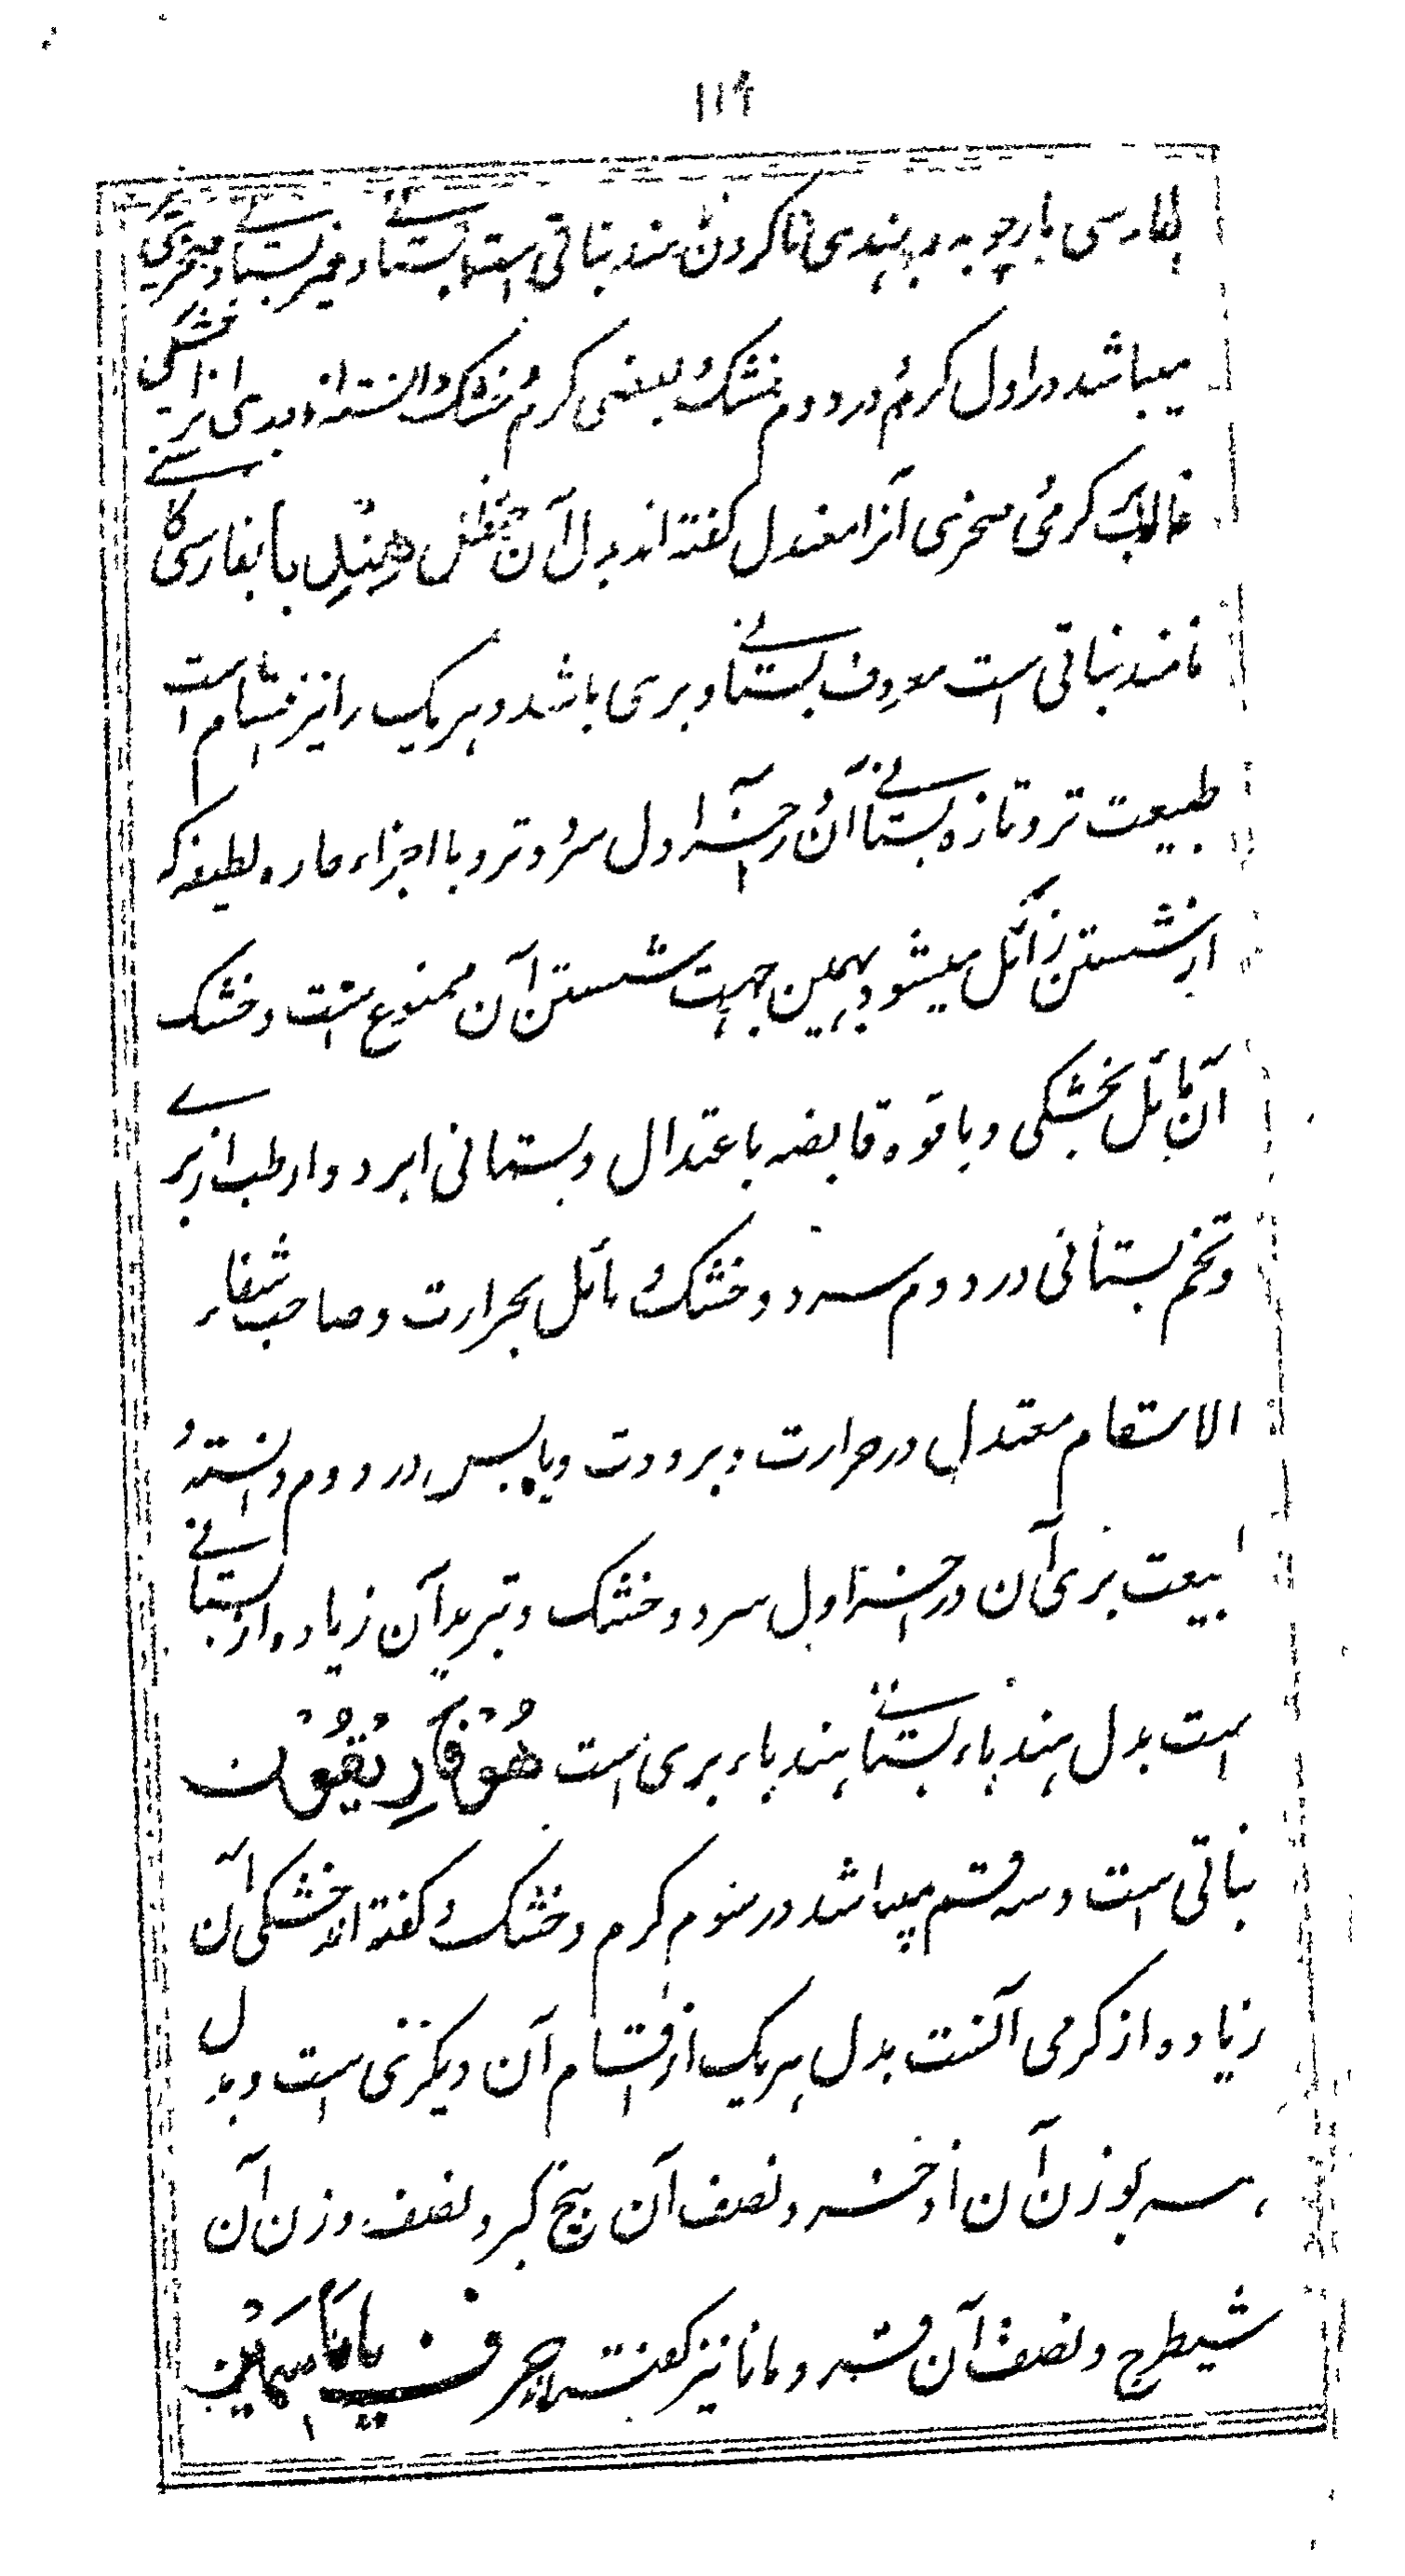 ۱۱۹
بفارسی مارچوبه و بهندی ناکرون نامند نباتی است بستانی و غیر بستانی و صخری
میباشد در اول گرم و در دوم خشک و بعضی گرم و خشک دانسته اند و بدی را خشکی بر
غالب گرمی صخری آنرا معتدل گفته اند بدل آن حنظل هِندِبا بفارسی کاسنی
نامند نباتی است معروف بستانی و بری باشد و هریک را نیز اقسام است
طبیعت تر و تازه بستانی آن در آخر اول سرد و تر و با اجزاء حاره لطیفه که
از شستن زائل میشود و بهمین جهت شستن آن ممنوع است و خشک
آن مائل بخشکی و با قوه قابضه باعتدال و بستانی ابرد و ارطب از بری
و تخم بستانی در دوم سرد و خشک و مائل بحرارت و صاحب شفاء
الاسقام معتدل در حرارت و برودت و یابس در دوم دانسته و
طبیعت بری آن در آخر اول سرد و خشک و تبرید آن زیاده از بستانی
است بدل هندباء بستانی هندباء بری است هُوفَارِیقُون
نباتی است و سه قسم میباشد در سوم گرم و خشک و گفته اند خشکی آن
زیاده از گرمی آنست بدل هریک از اقسام آن دیگری است و بدل
سه بوزن آن اذخر و نصف آن بیخ کبر و نصف وزن آن
شیطرج و نصف آن قسر و مانا نیز گفته اند حرف یا یَاسَمِین